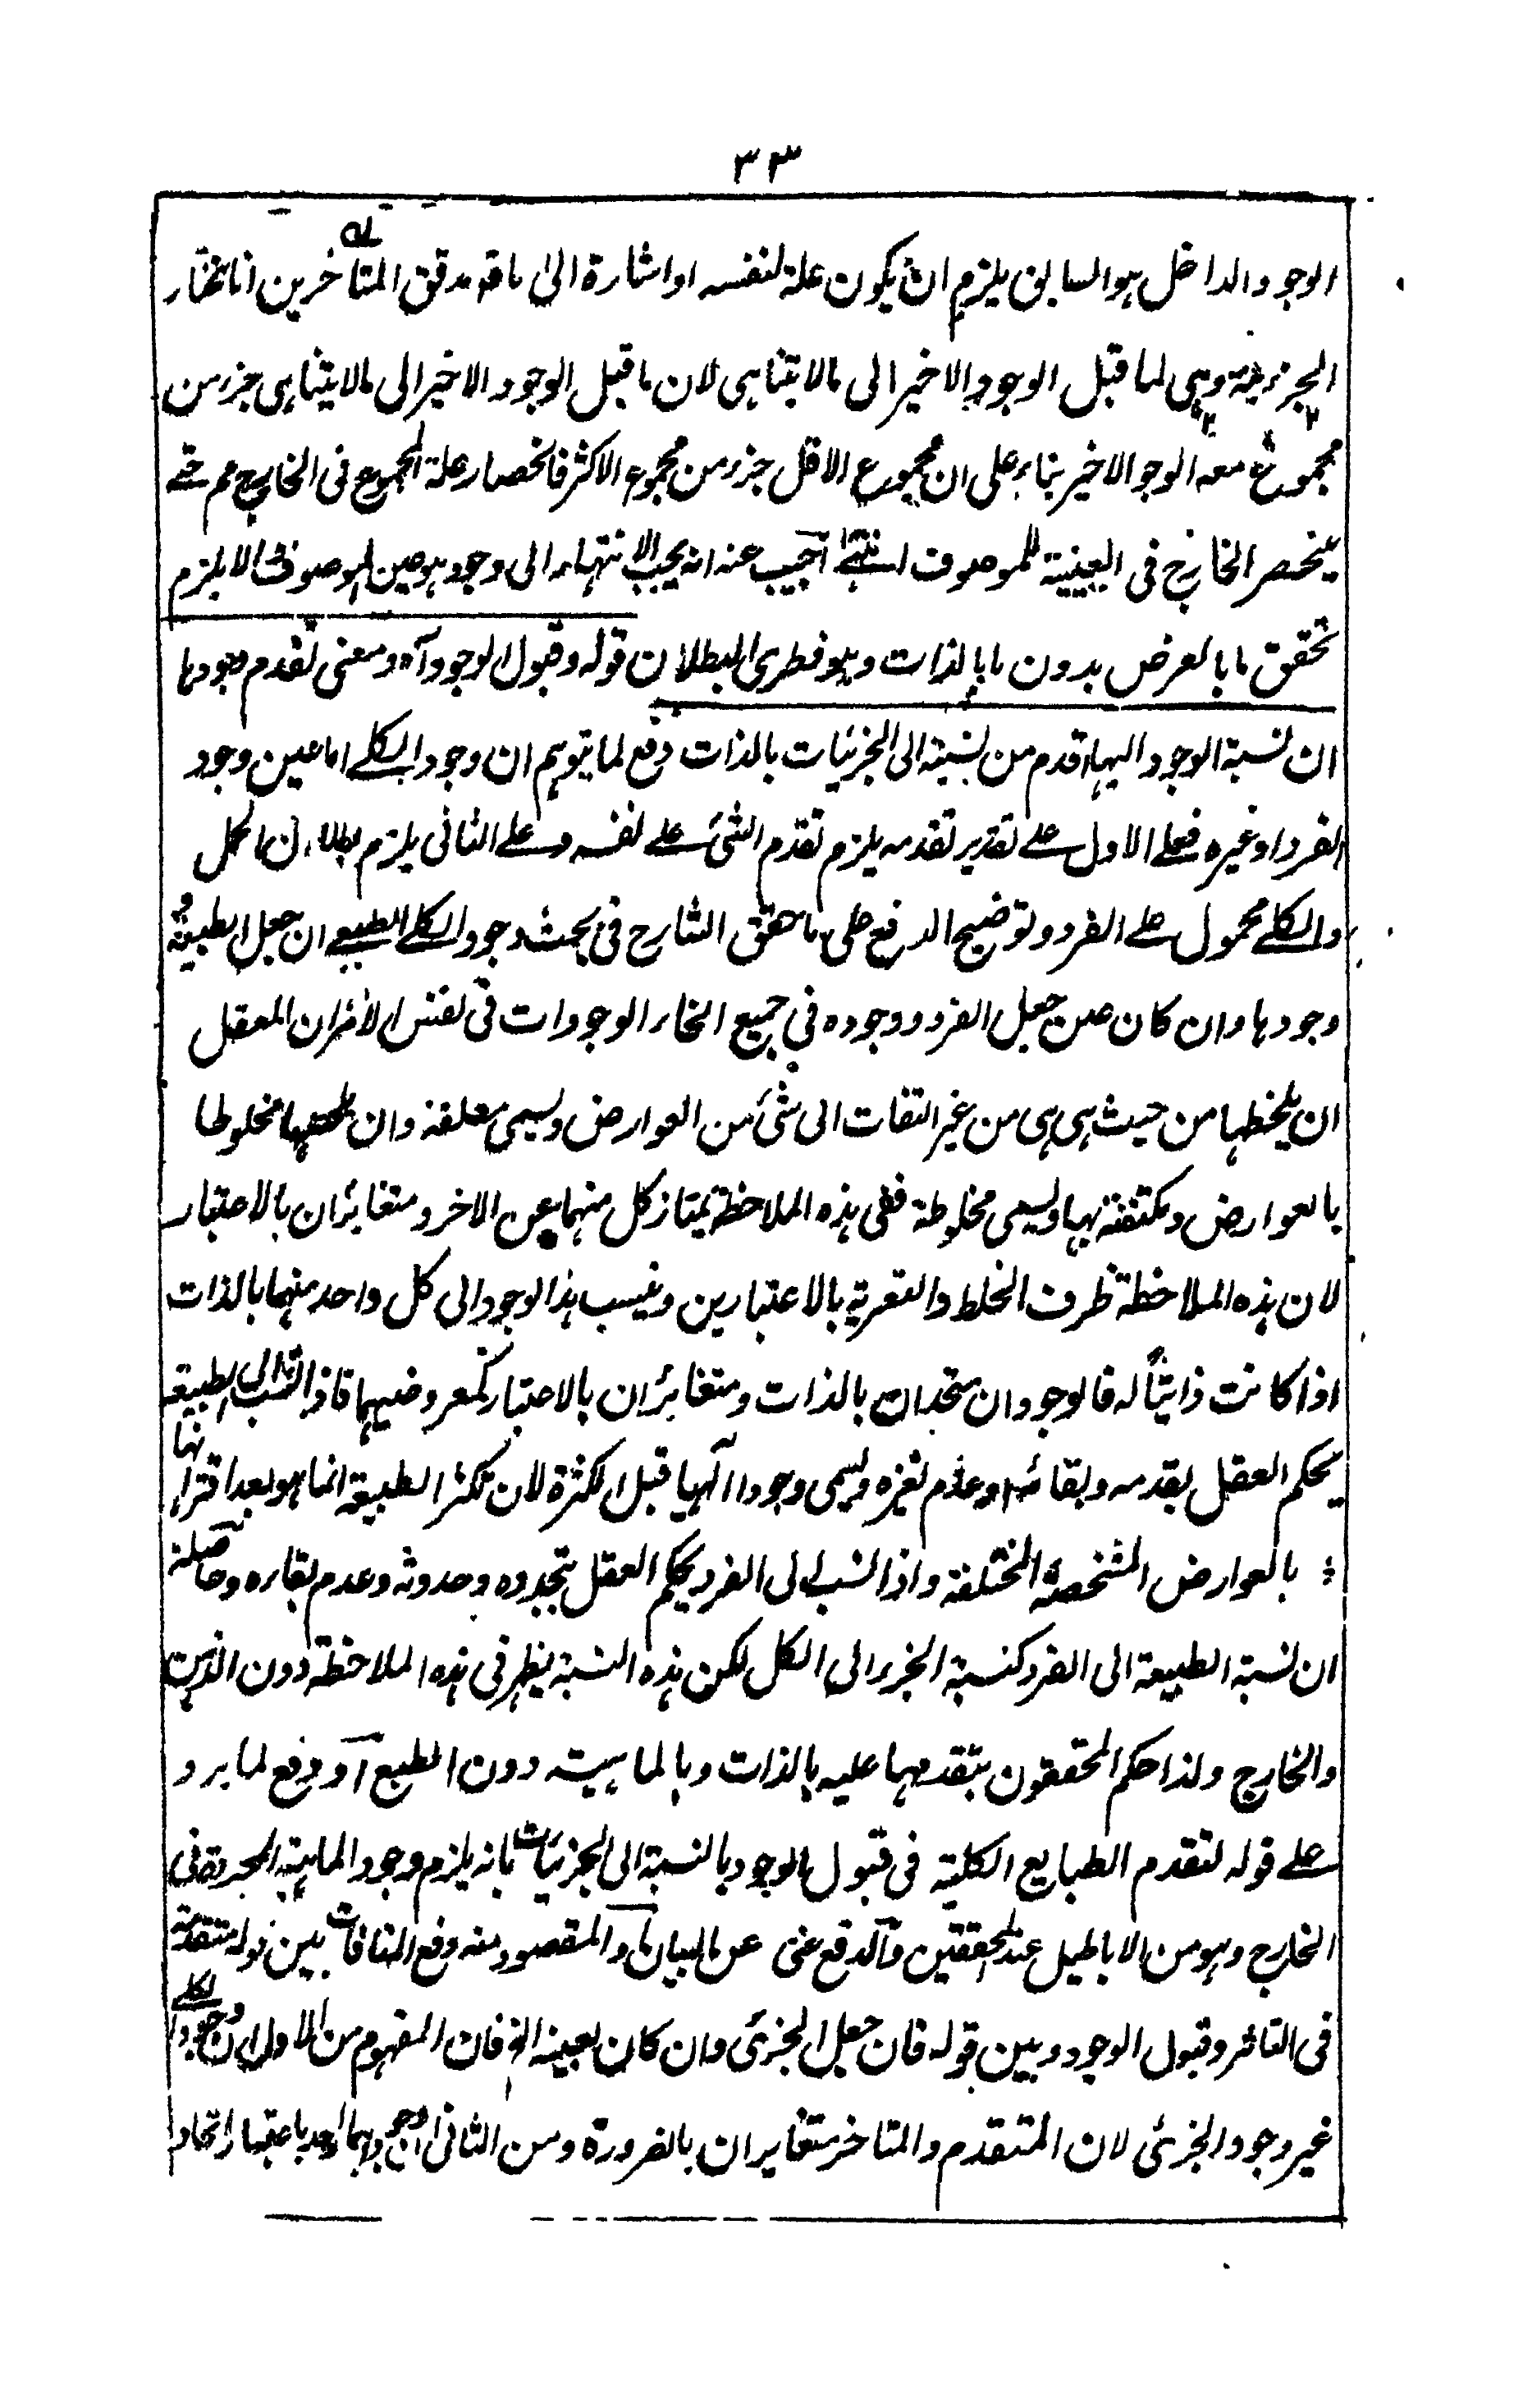 ٣٣
الوجود الداخل هو السابق يلزم ان يكون علة لنفسه او اشارة الى ما قد مدقق المتاخرين انا نختار
الجزئية وهى لما قبل الوجود الاخير الى مالا يتناهى لان ما قبل الوجود الاخير الى مالا يتناهى جزء من
مجموع معه الوجو الاخير بناء على ان مجموع الاقل جزء من مجموع الاكثر فانحصار علة المجموع فى الخارج مم حتے
ينحصر الخارج فى العينية للموصوف انتهے اجيب عنه انه يجب الانتهاء الى وجود هو عين الموصوف والا يلزم
تحقق ما بالعرض بدون ما بالذات وهو فطرى البطلان قوله وقبول الوجود آه ومعنى تقدم وجودها
ان نسبة الوجود اليها اقدم من نسبته الى الجزئيات بالذات دفع لما يتوهم ان وجود الكلے اما عين وجود
الفرد او غيره فعلے الاول علے تقدير تقدمه يلزم تقدم الشئ علے نفسه وعلے الثانى يلزم بطلان الحمل
والكلے محمول علے الفرد وتوضيح الدفع على ما حقق الشارح فى بحث وجود الكلے الطبيعے ان جعل الطبيعة و
وجودها وان كان عين جعل الفرد ووجوده فى جميع انحاء الوجودات فى نفس الامر ان للعقل
ان يلحظها من حيث هى هى من غير التفات الى شئ من العوارض ويسمى مطلقة وان يلحظها مخلوطا
بالعوارض ومكتنفة بها ويسمى مخلوطة ففى هذه الملاحظة يمتاز كل منهما عن الاخر ومتغايران بالاعتبار
لان هذه الملاحظة ظرف الخلط والتعرية بالاعتبارين وينسب هذا الوجود الى كل واحد منهما بالذات
اذا كانت ذاتيا له فالوجودان متحدان بالذات ومتغايران بالاعتبار كمعروضيهما فاذا انتسب الى الطبيعة
يحكم العقل بقدمه وبقائه وعدم تغيره ويسمى وجودا الهيا قبل الكثرة لان تكثر الطبيعة انما هو بعد اقترانها
بالعوارض المشخصة المختلفة واذا انتسب الى الفرد يحكم العقل بتجدده وحدوثه وعدم بقاءه وحاصله
ان نسبة الطبيعة الى الفرد كنسبة الجزء الى الكل لكن هذه النسبة يظهر فى هذه الملاحظة دون الذهن
والخارج ولذا حكم المحققون بتقدمها عليه بالذات وبالماهية دون الطبع او دفع لما يرد
علے قوله لتقدم الطبايع الكلية فى قبول الوجود بالنسبة الى الجزئيات بانه يلزم وجود الماهية المجردة فى
الخارج وهو من الاباطيل عند المحققين والدفع غنى عن البيان والمقصود منه دفع المنافات بين قوله متقدمة
فى التاثر وقبول الوجود وبين قوله فان جعل الجزئى وان كان بعينه الخ فان المفهوم من الاول ان وجود الكلے
غير وجود الجزئى لان المتقدم والمتاخر متغايران بالضرورة ومن الثانى ان وجودهما واحد باعتبار اتحاد